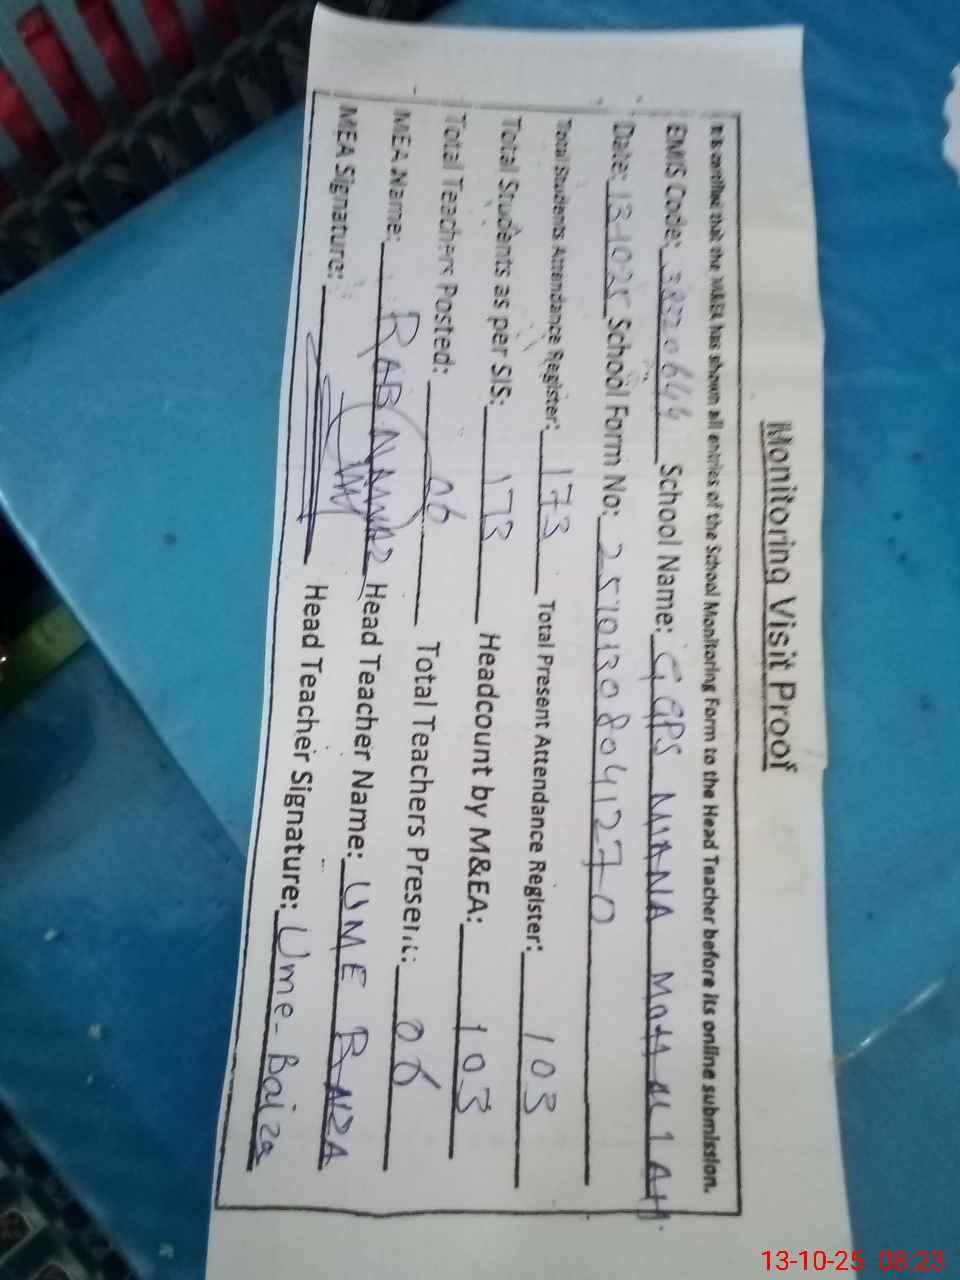 Monitoring Visit Proof
It is certified that the M&EA has shown all entries of the School Monitoring Form to the Head Teacher before its online submission.
EMIS Code: 38320644 School Name: GGPS MIANA
Date: 13-10-25 School Form No: 25701308041270
Total Students Attendance Register: 173 Total Present Attendance Register: 103
Total Students as per SIS: 173 Headcount by M&EA: 103
Total Teachers Posted: 06 Total Teachers Present: 06
MEA Name: RAB NAWAZ Head Teacher Name: UME
MEA Signature: Head Teacher Signature: Ume-Baiza
13-10-25 08:23